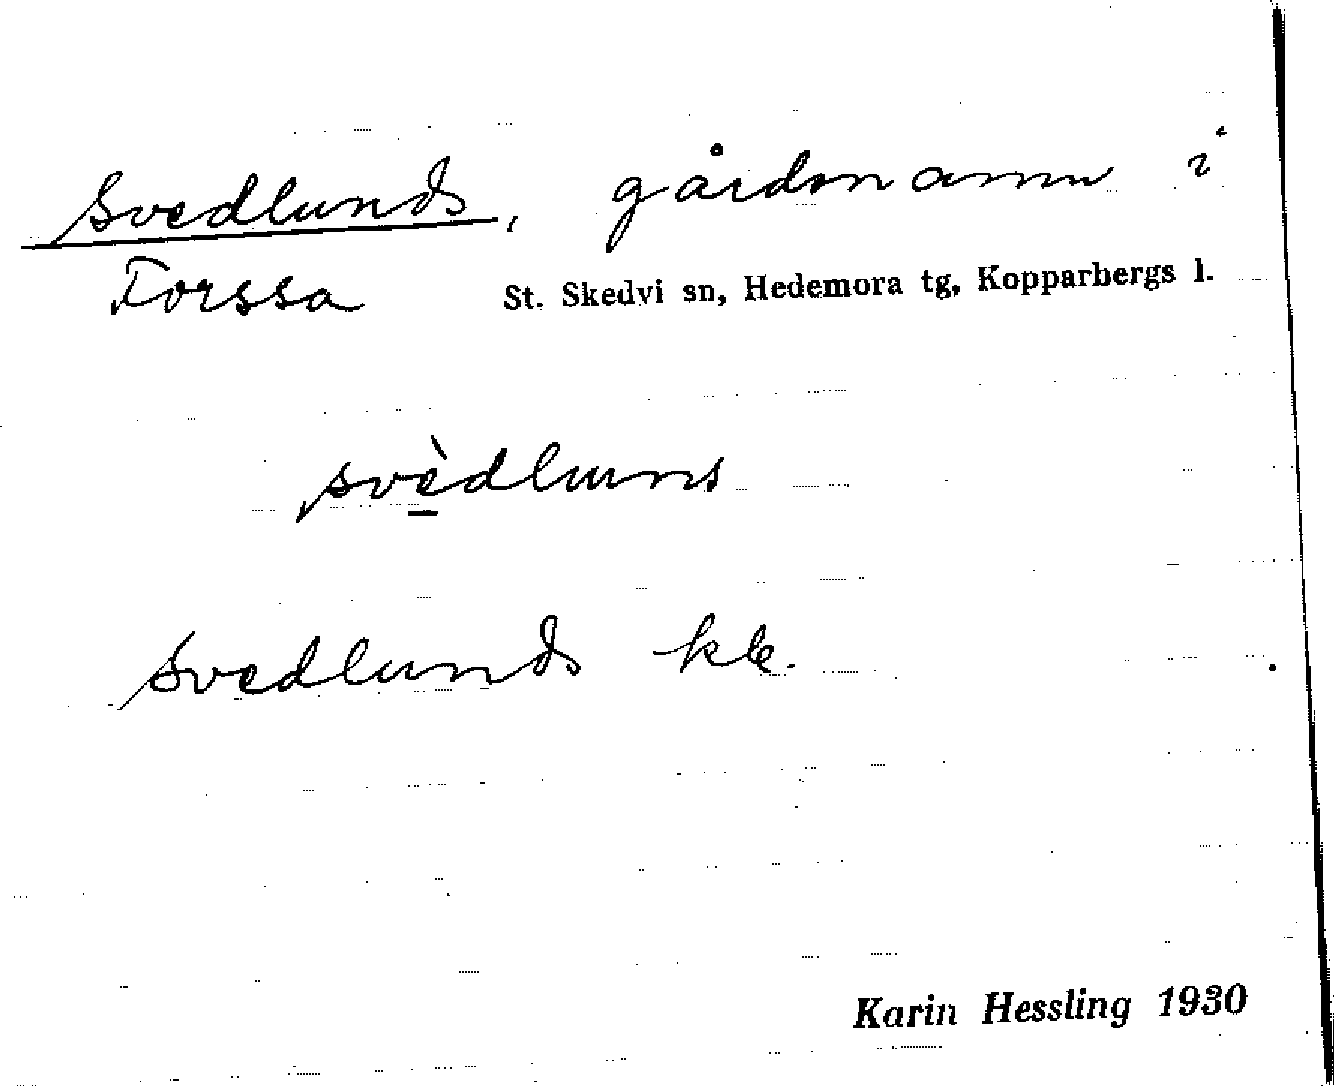 Svedlunds, gårdsnamn i
Forssa St. Skedvi sn, Hedemora tg, Kopparbergs l.
svèdluns
Svedlunds kle.
Karin Hessling 1930